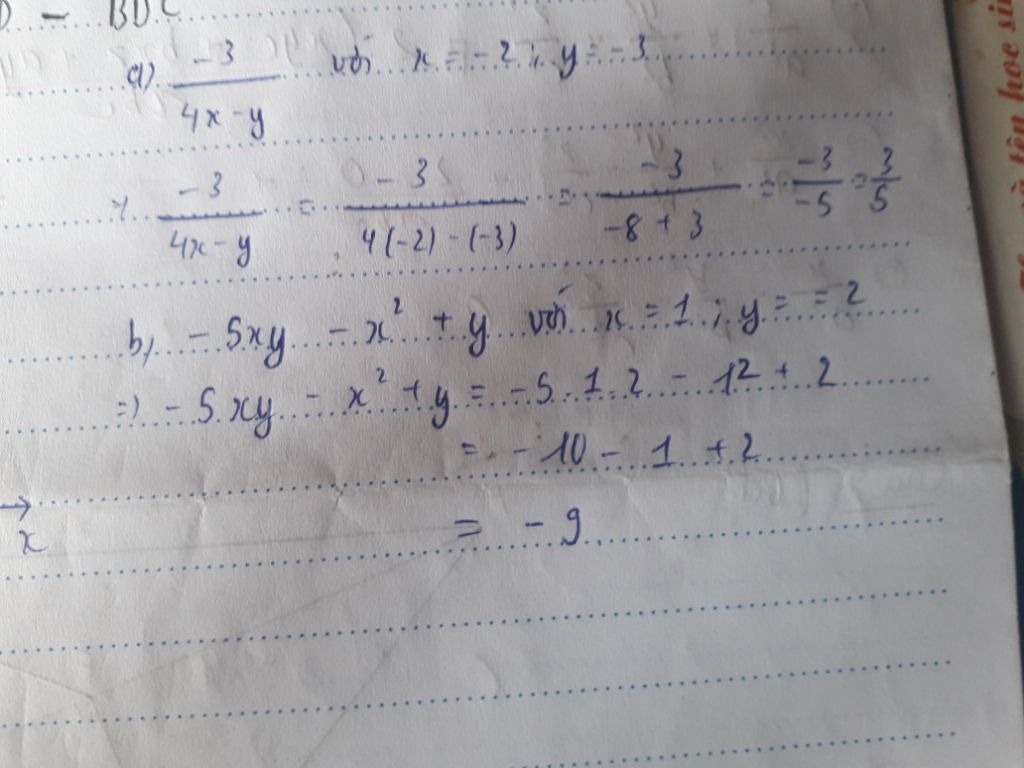 - BDC
a) \frac{-3}{4x-y} với x = -2 ; y = -3
\frac{-3}{4x-y} = \frac{-3}{4(-2)-(-3)} = \frac{-3}{-8+3} = \frac{-3}{-5} = \frac{3}{5}
b) - 5xy - x² + y với x = 1 ; y = = 2
=) - 5xy - x² + y = -5.1.2 - 1² + 2
= - 10 - 1 + 2
x = - 9
tên học sin